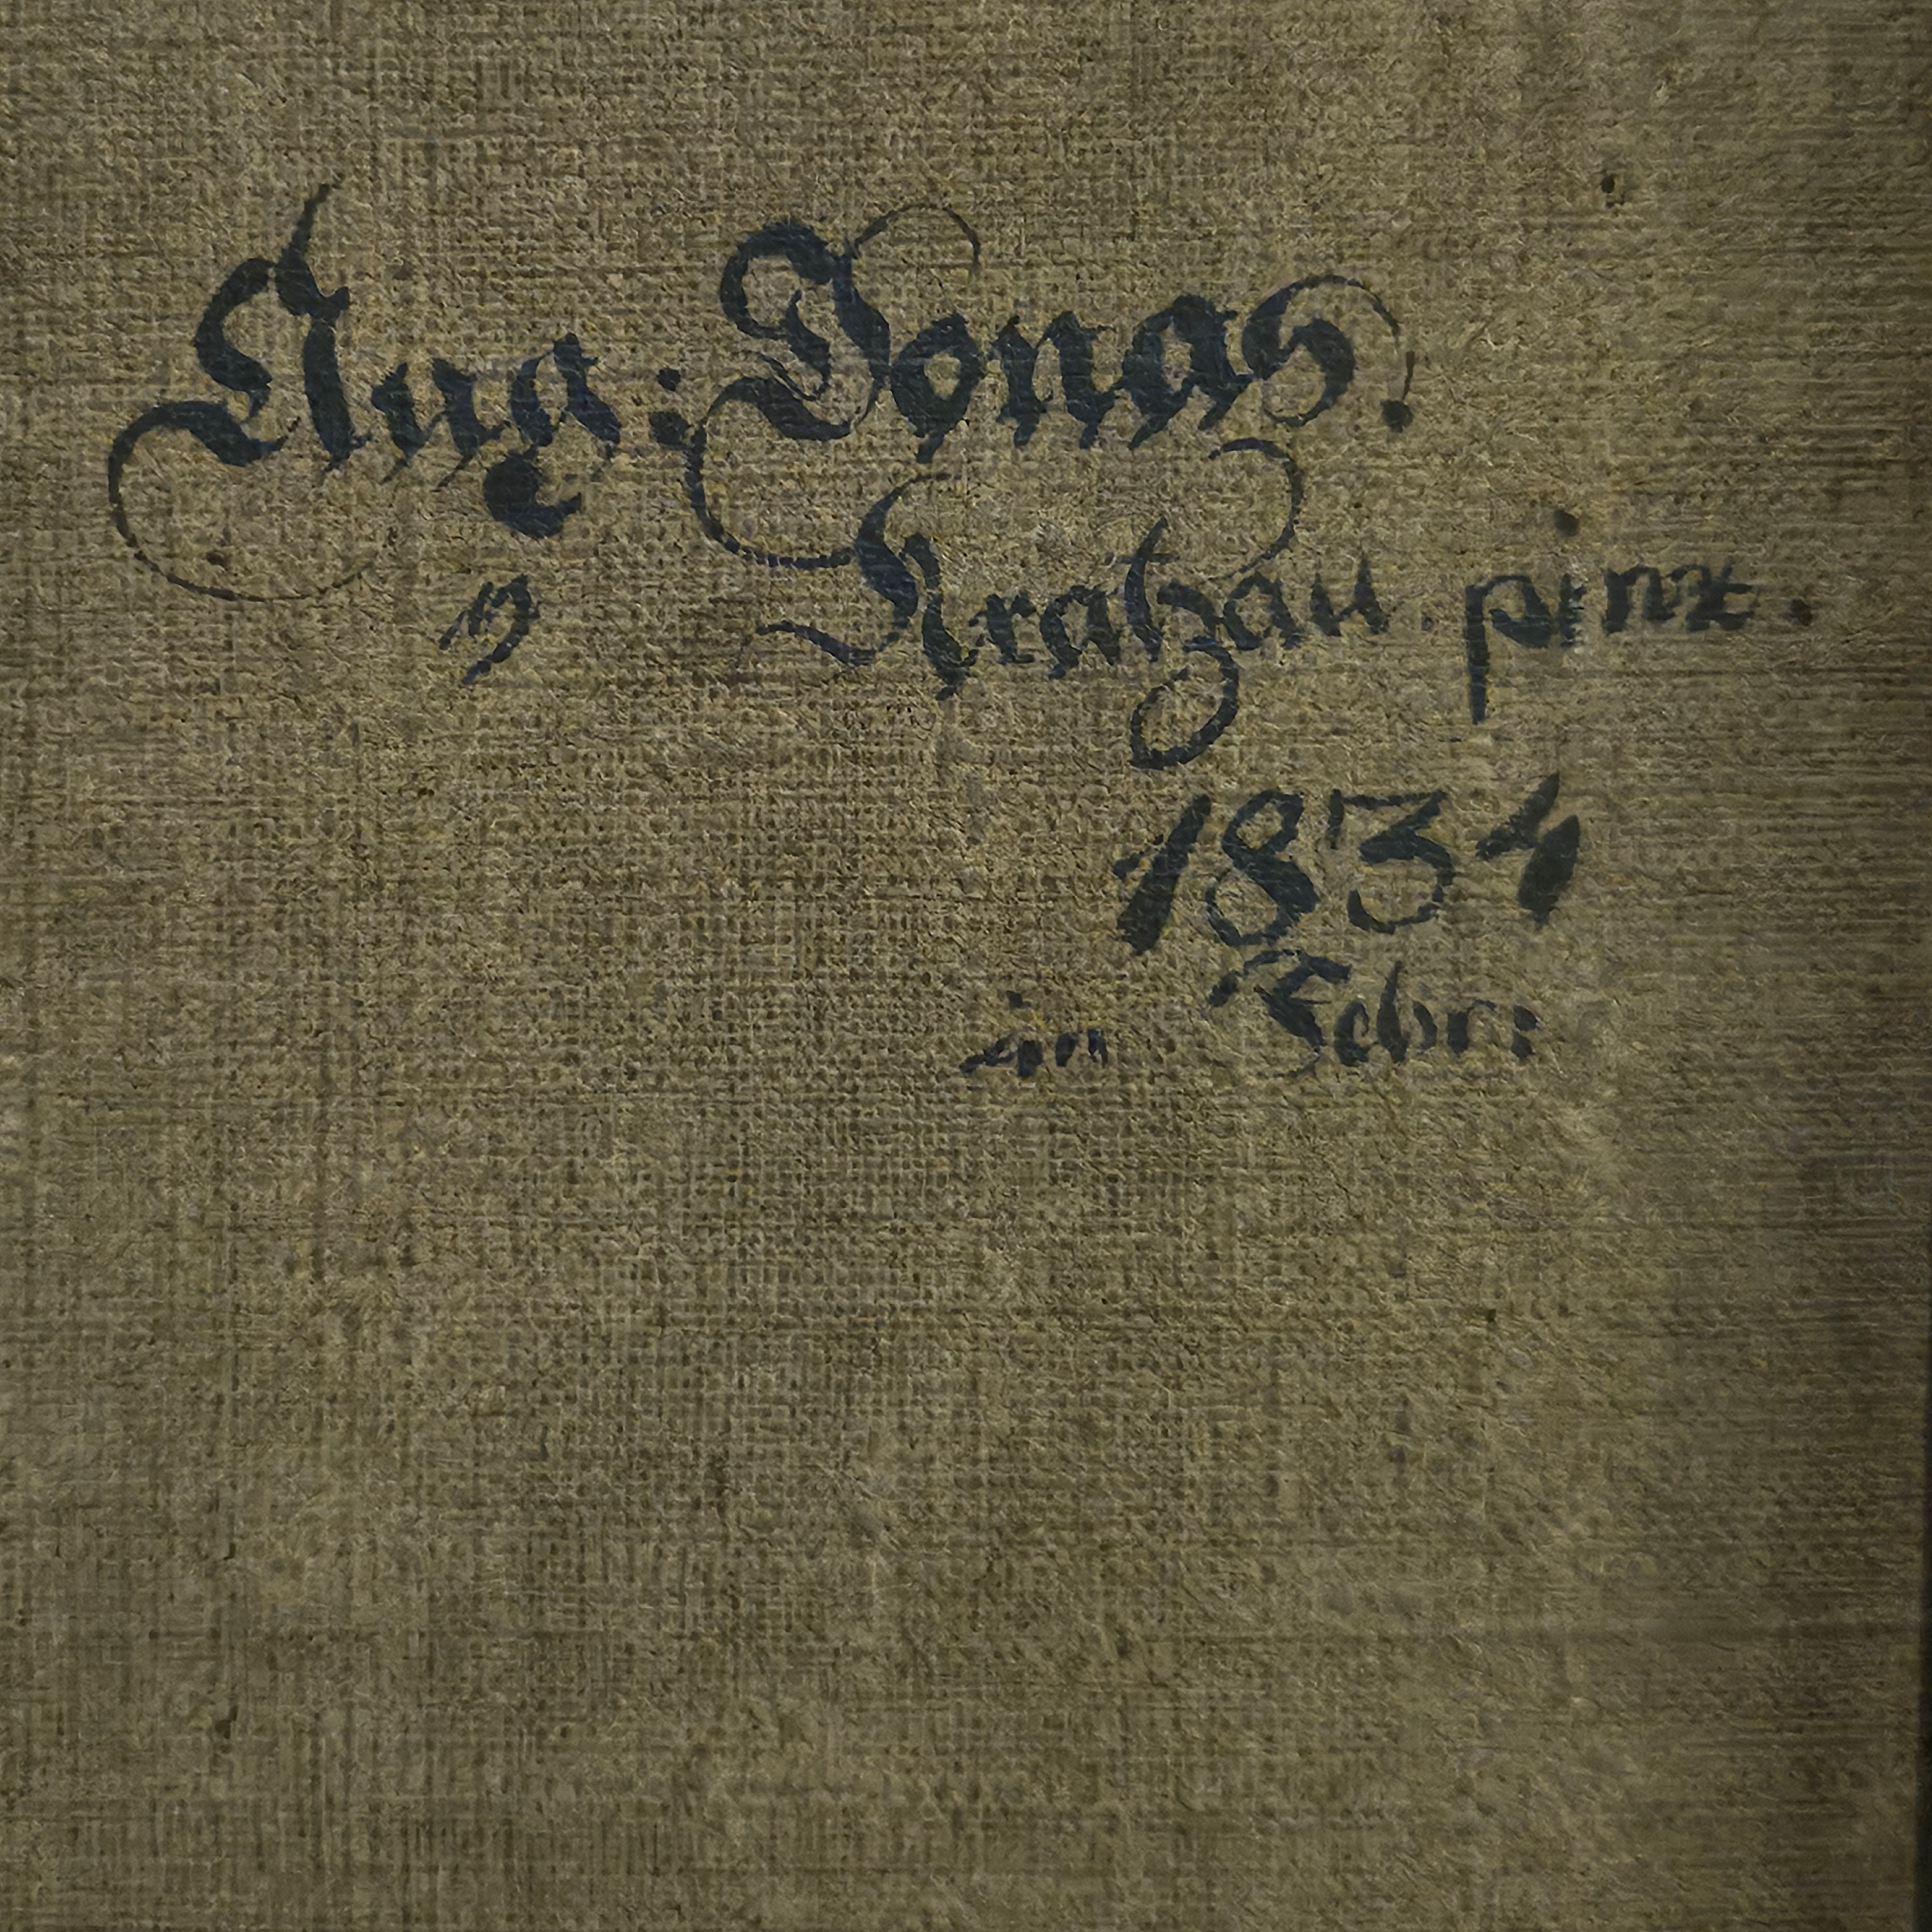 Aug: Jonas.
Kratzau pinx.
1834
im Febr: